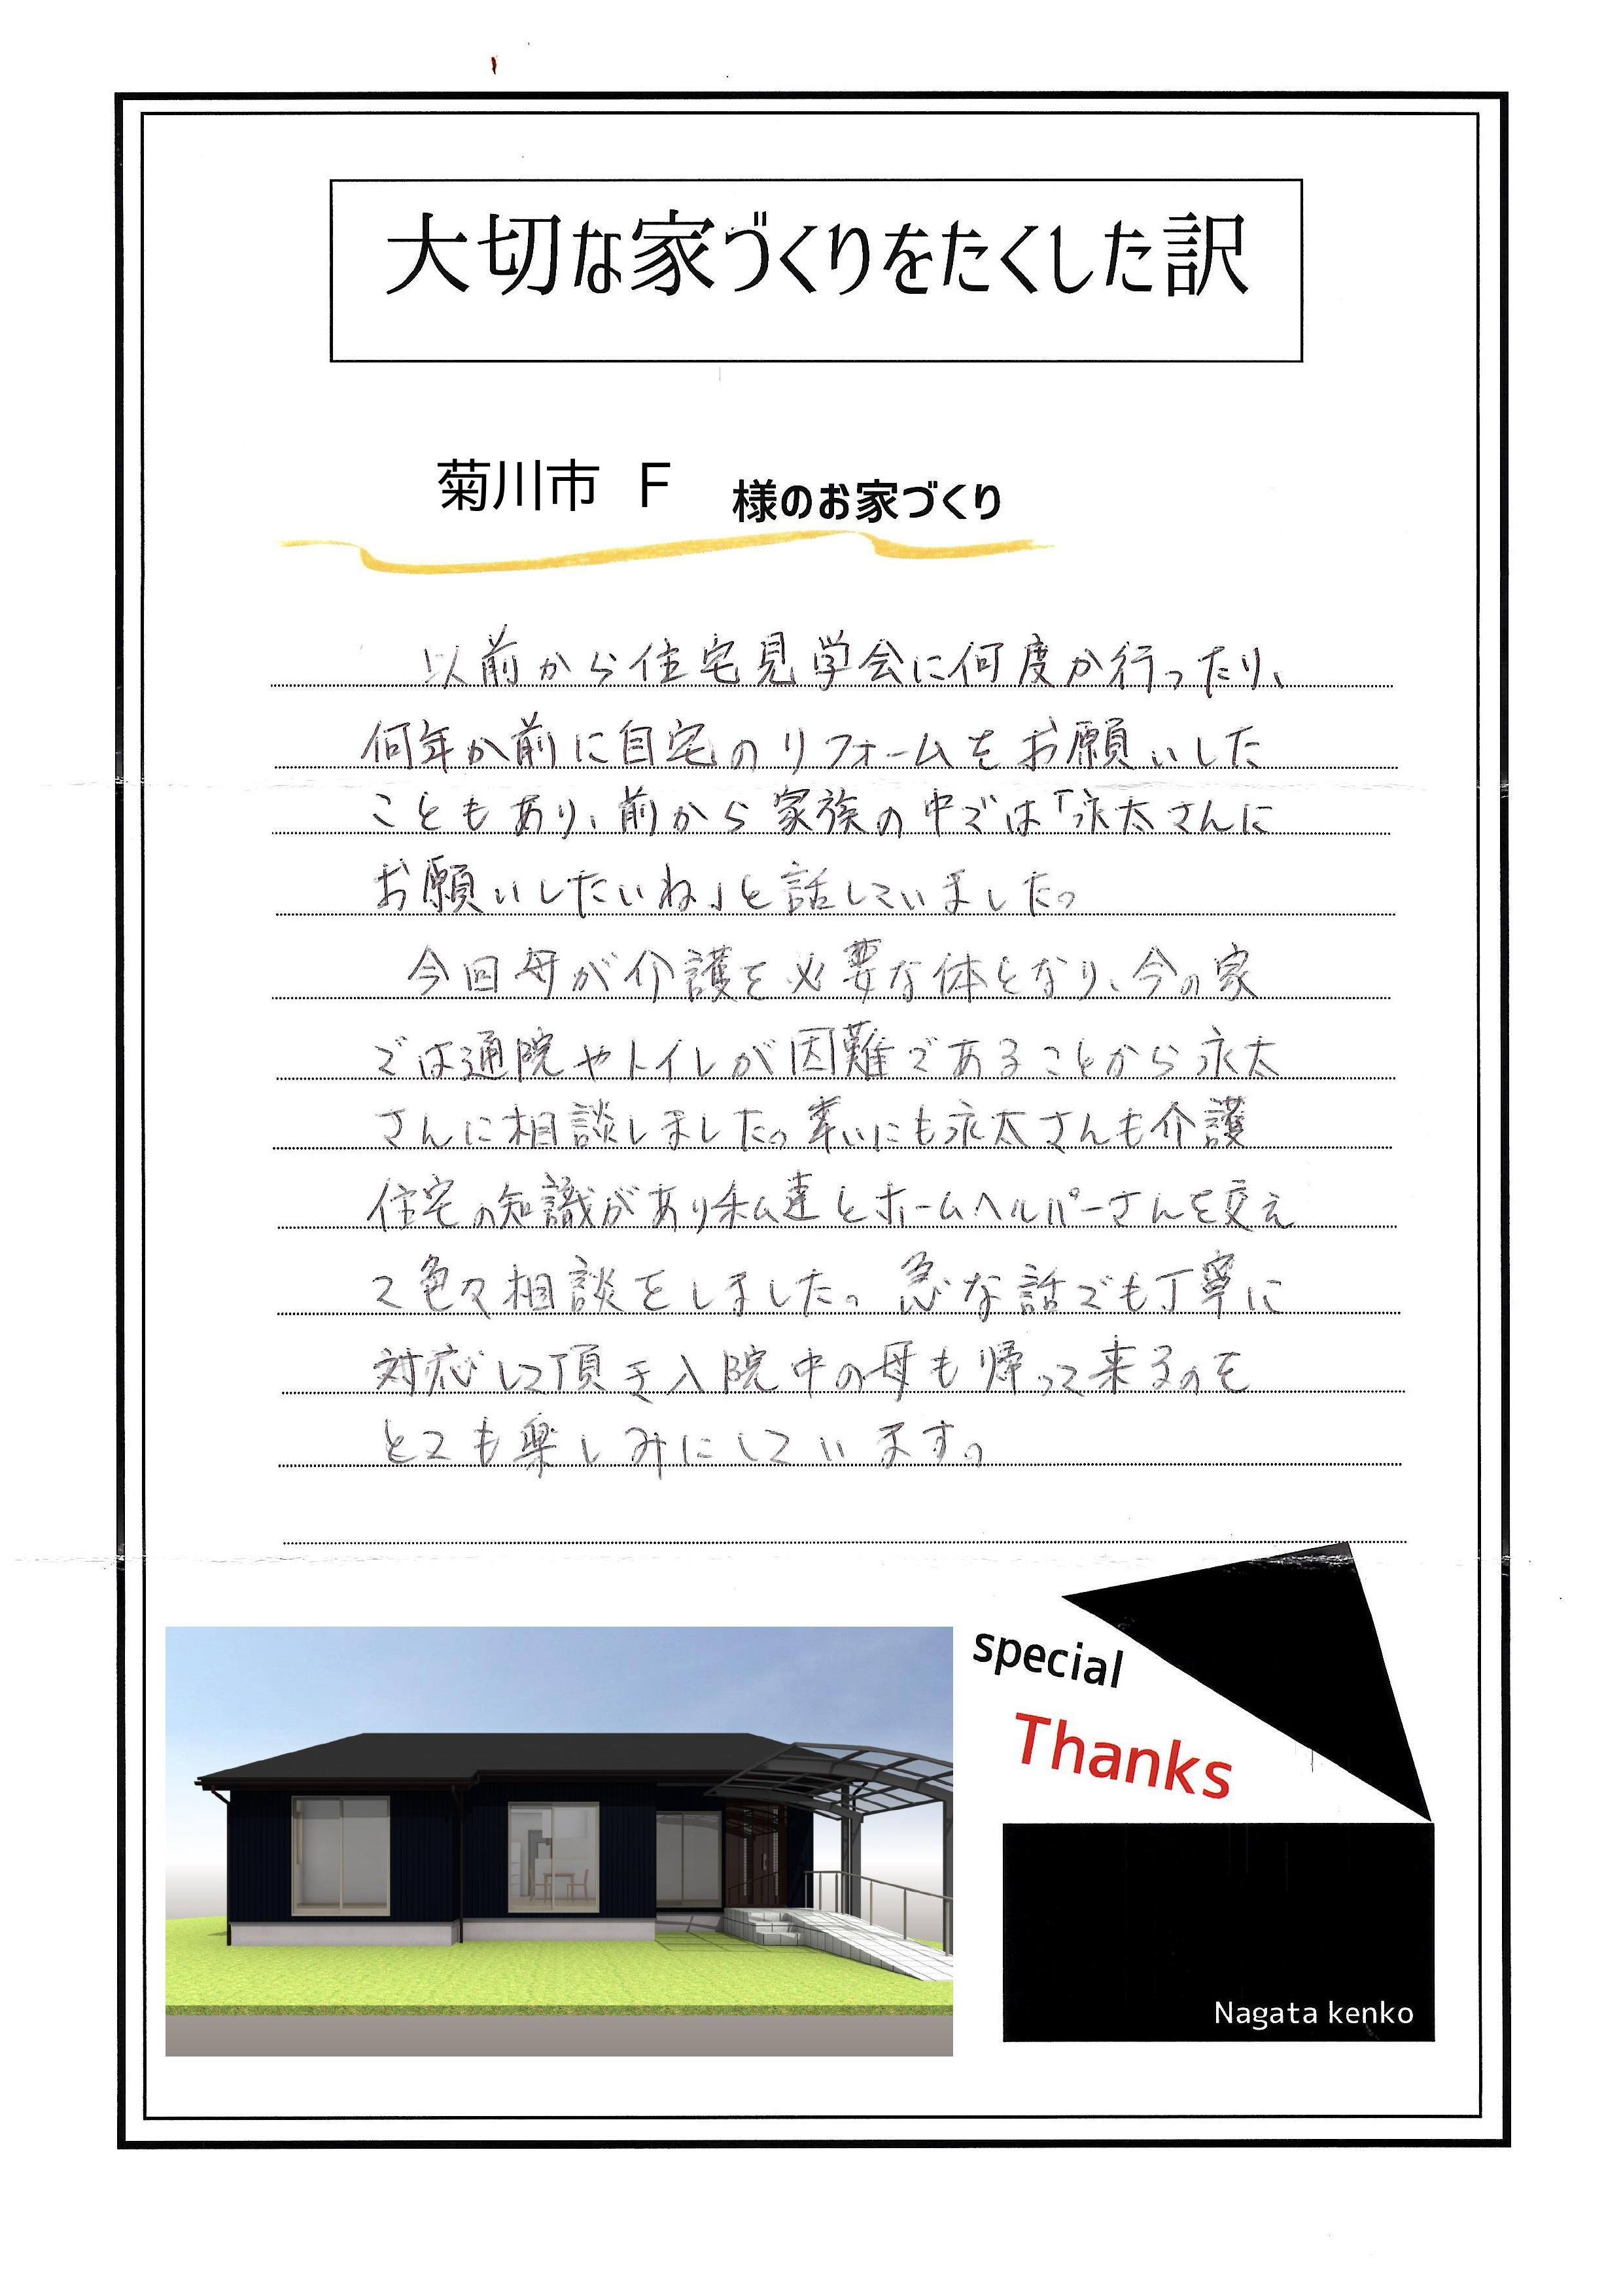 大切な家づくりをたくした訳
菊川市 F 様のお家づくり
以前から住宅見学会に何度か行ったり、
何年か前に自宅のリフォームをお願いした
こともあり、前から家族の中では「永太さんに
お願いしたいね」と話していました。
今回母が介護を必要な体となり、今の家
では通院やトイレが困難であることから永太
さんに相談しました。幸いにも永太さんも介護
住宅の知識があり私達とホームヘルパーさんを交え
て色々相談をしました。急な話でも丁寧に
対応して頂き入院中の母も帰って来るのを
とても楽しみにしています。
special
Thanks
Nagata kenko